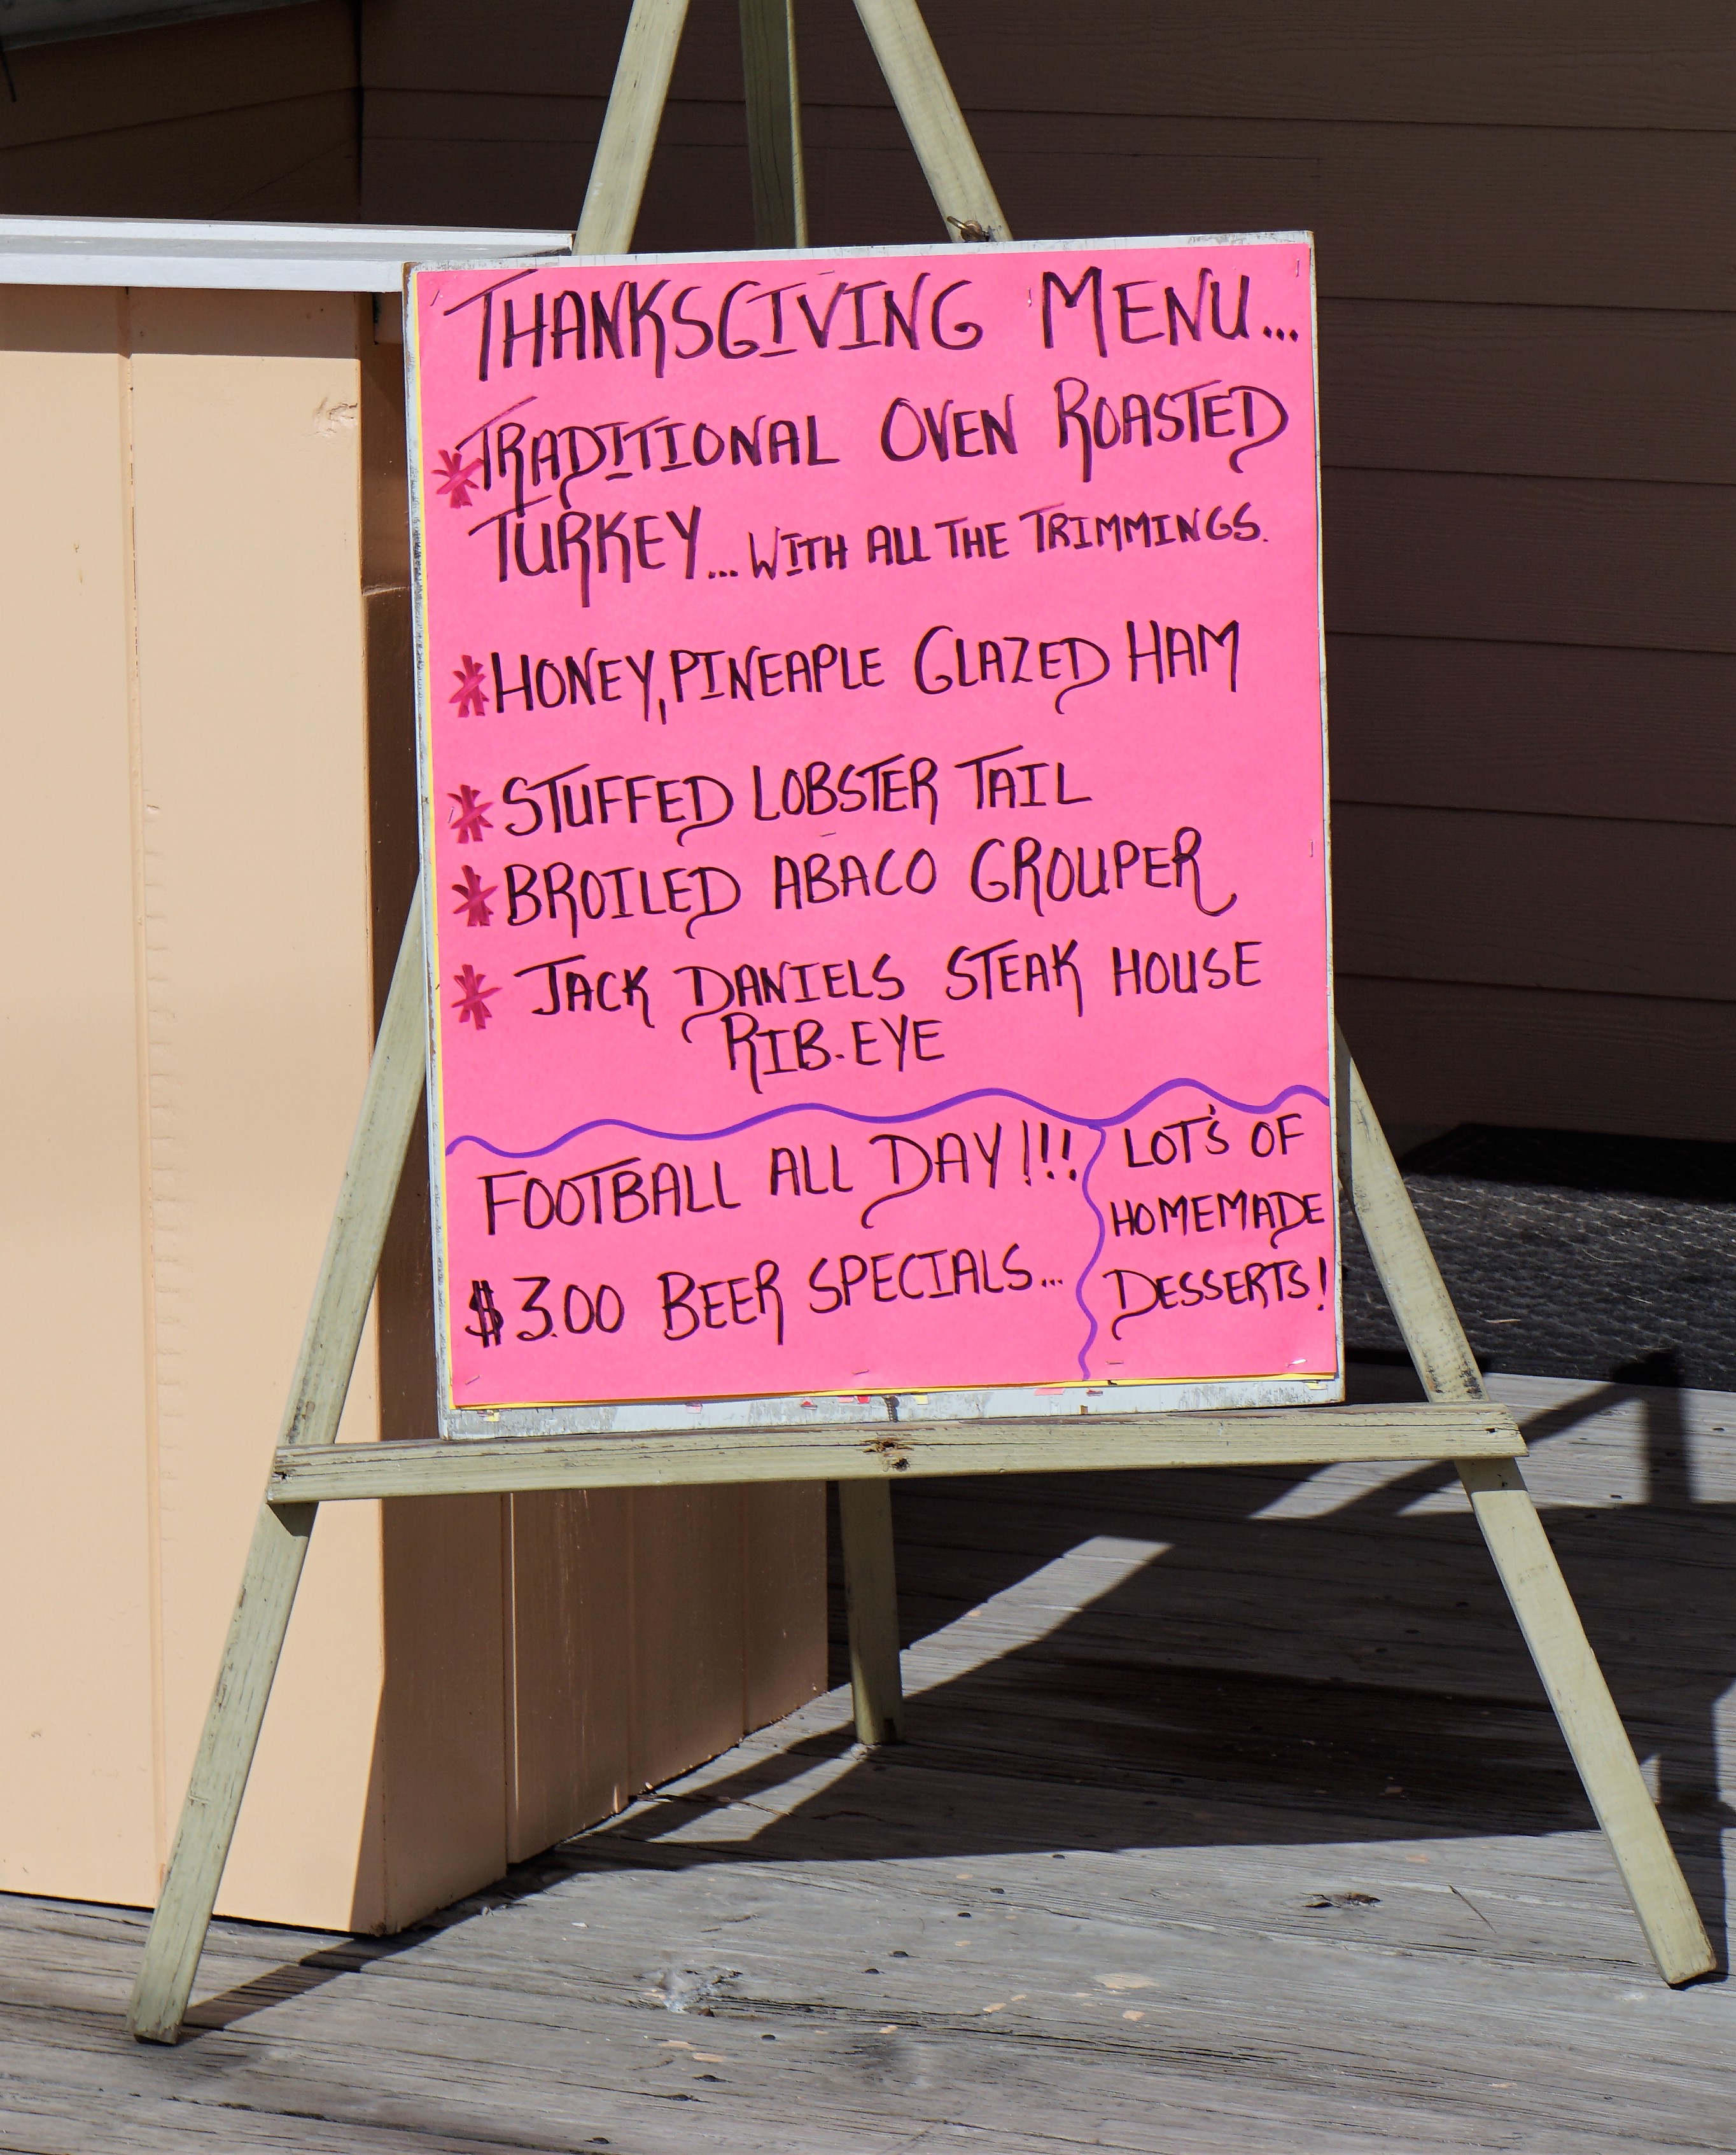 THANKSGIVING MENU...
*TRADITIONAL OVEN ROASTED
TURKEY... WITH ALL THE TRIMMINGS.
*HONEY, PINEAPLE GLAZED HAM
*STUFFED LOBSTER TAIL
*BROILED ABACO GROUPER
*JACK DANIELS STEAK HOUSE
RIB-EYE
FOOTBALL ALL DAY!!!
$3.00 BEER SPECIALS...
LOT'S OF
HOMEMADE
DESSERTS!